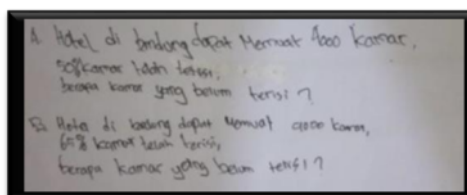 A. Hotel di bandung dapat Memuat 1000 kamar,
50% kamar telah terisi,
berapa kamar yang belum terisi ?
B. Hotel di bandung dapat Memuat 9000 kamar,
65% kamar telah terisi,
berapa kamar yang belum terisi ?